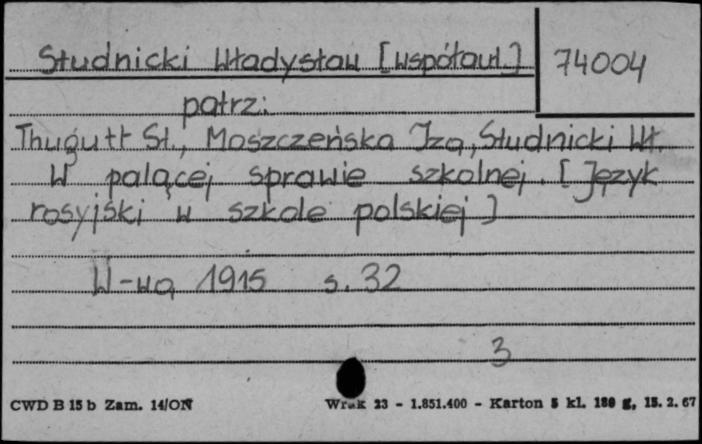 Studnicki Władysław [współaut.]
74004
patrz:
Thugutt St., Moszczeńska Iza, Studnicki Wł.
W palącej sprawie szkolnej. [Język
rosyjski w szkole polskiej]
W-wa 1915 s. 32
3
CWD B 15 b Zam. 14/ON Wrak 23 - 1.851.400 - Karton 5 kl. 180 g, 15. 2. 67